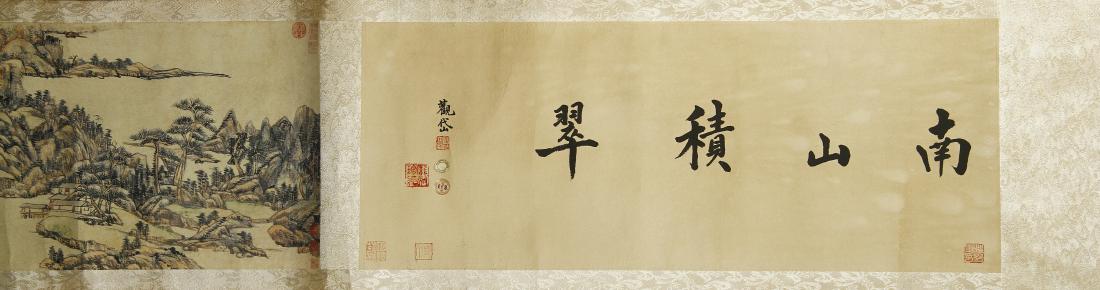 南山積翠
觀岱